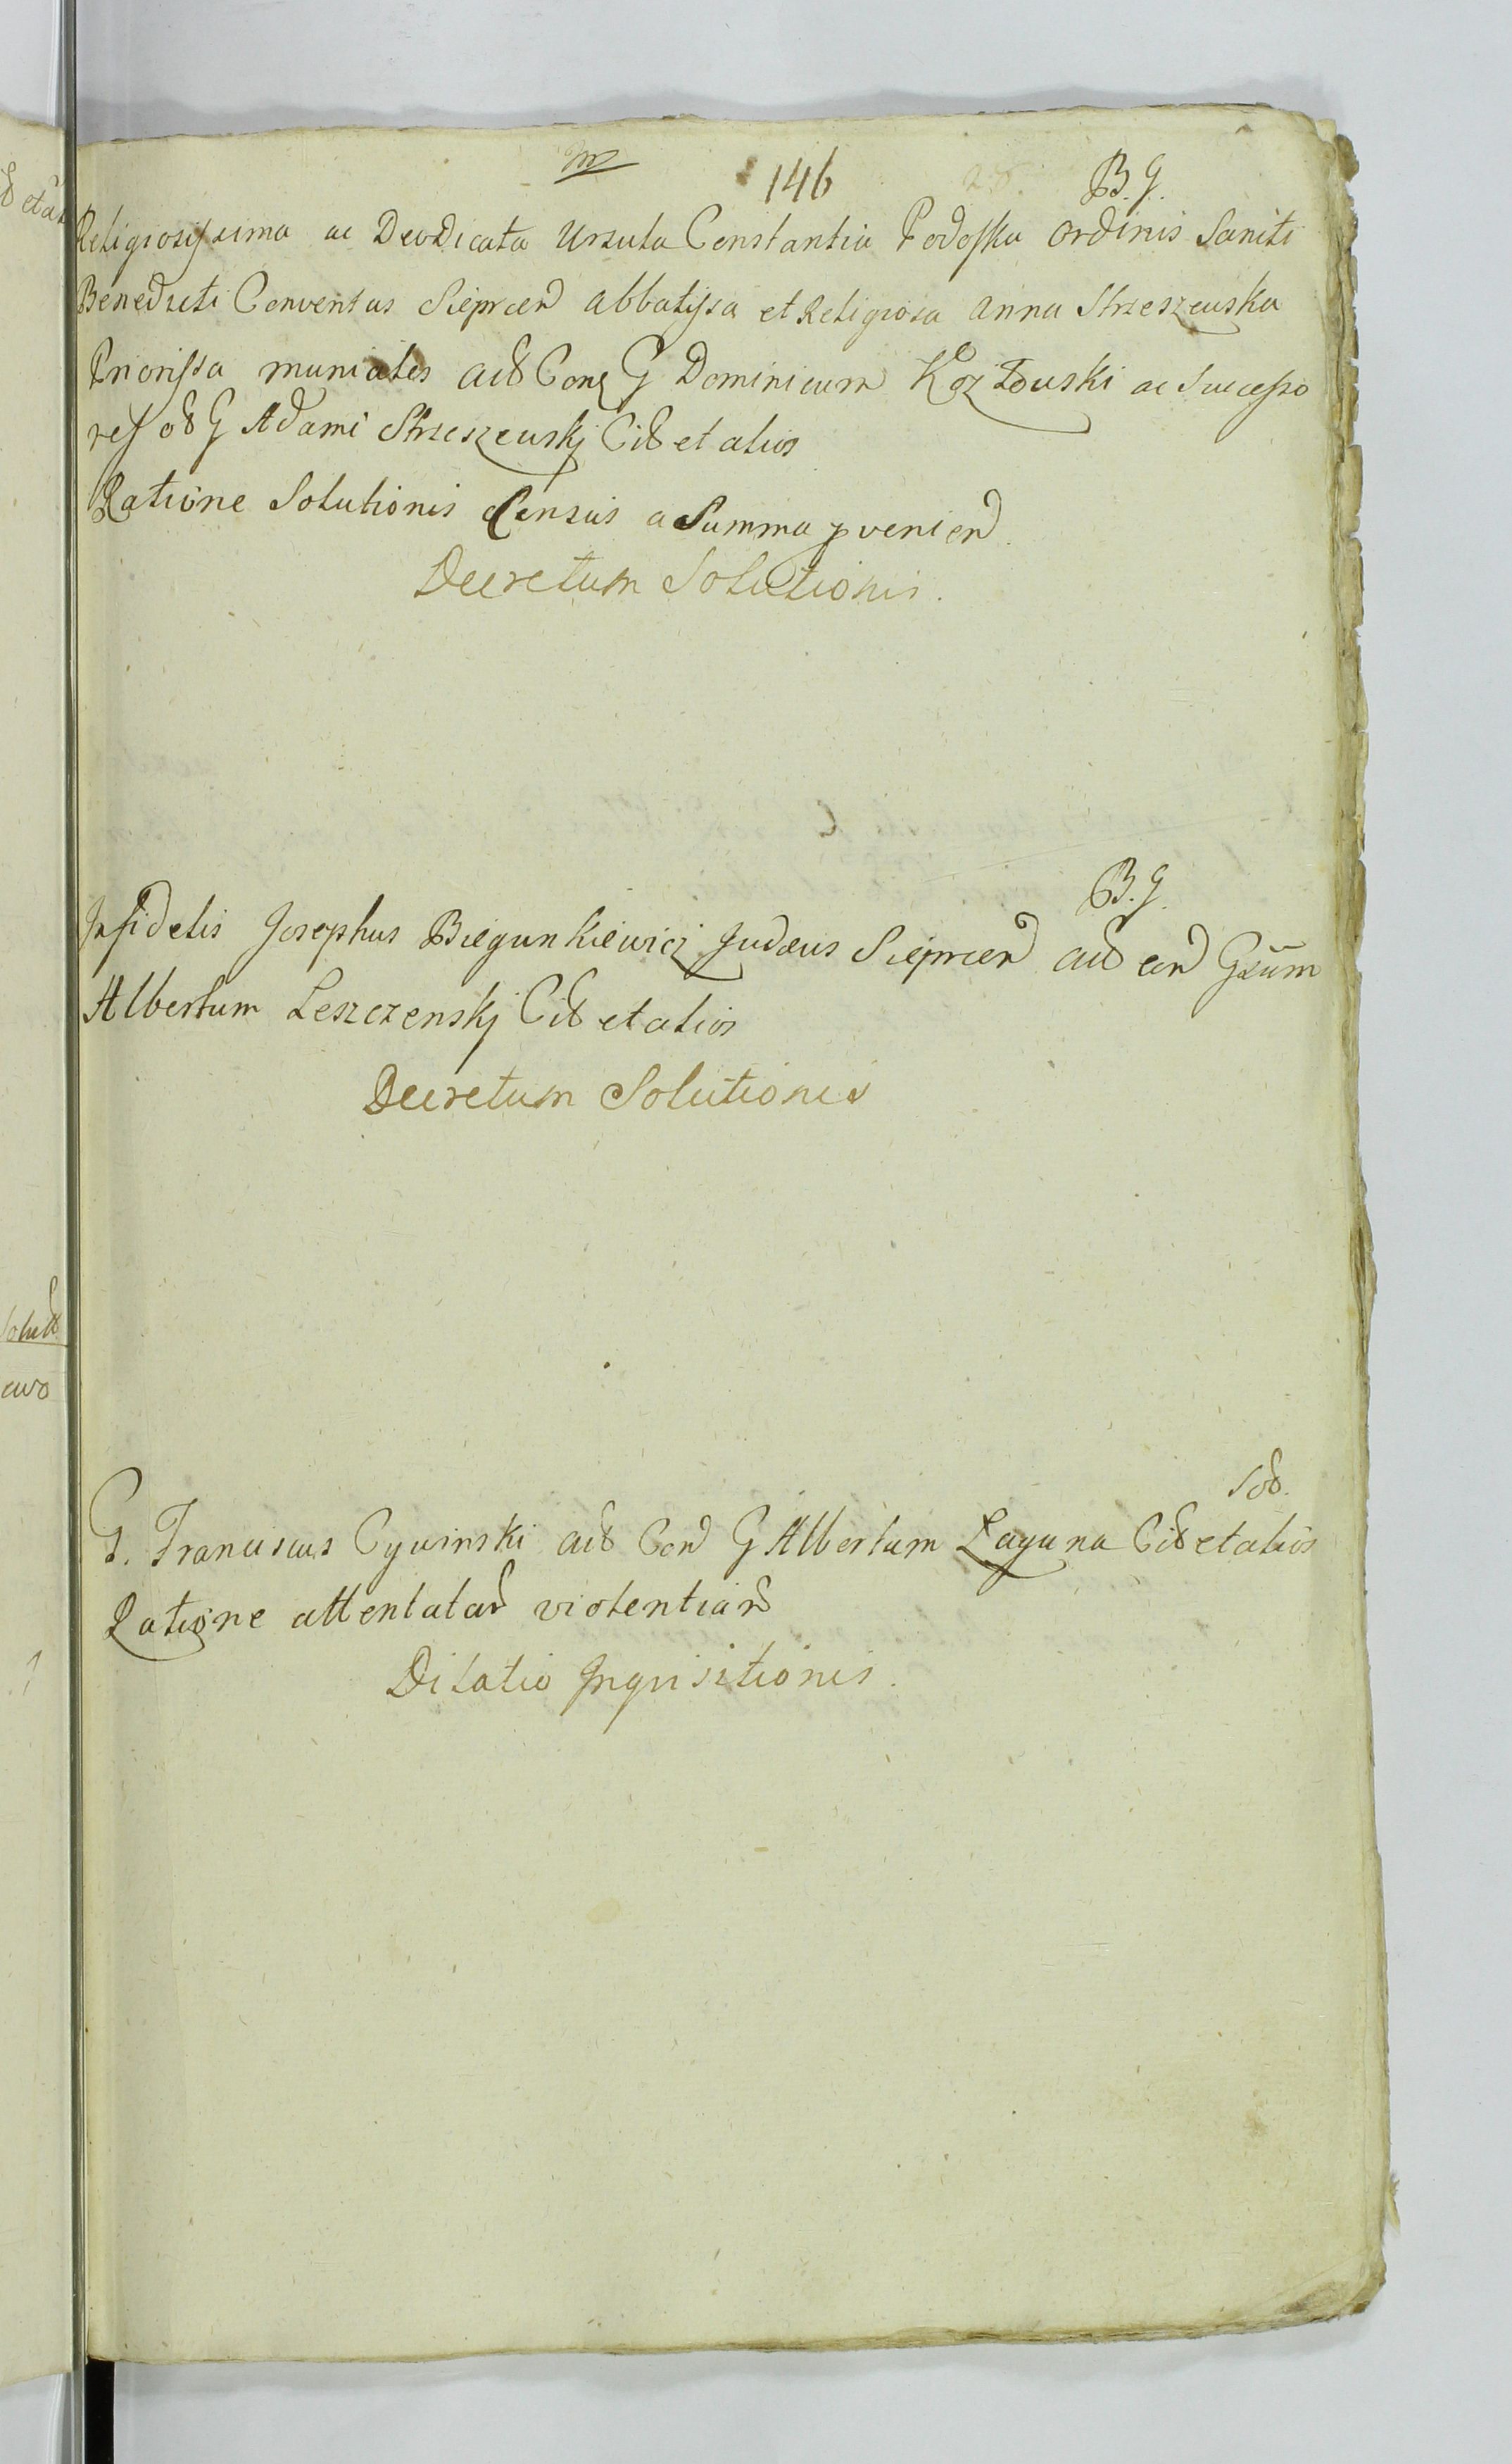 146
B. G.
Religiosissima ac Deo Dicata Ursula Constantia Podoska Ordinis Sancti
Benedicti Conventus Sieprcen Abbatissa et Religiosa Anna Strzeszewska
Priorissa moniales Con G Dominicum Kozłowski ac Successo
res G Adami Strzeszewskj Cit et alios
Ratione Solutionis Census a Summa pvenien
Decretum Solutionis.
B. G.
Infidelis Josephus Biegunkiewicz Judæus Sieprcen Gsum
Albertum Leszczenskj Cit et alios
Decretum Solutionis
G. Franciscus Cywinski Con G Albertum Laguna Cit et alios
Ratione attentatar violentiar
Dilatio Inquisitionis.